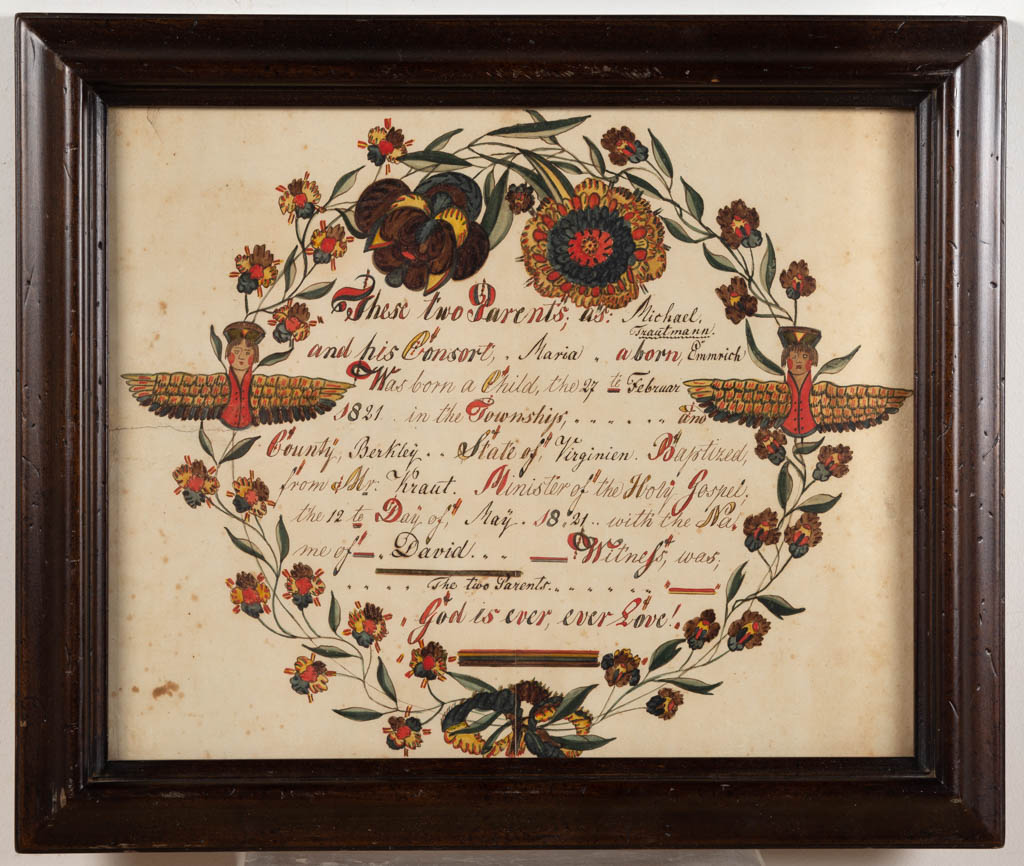 These two Parents, as: Michael,
Trautmann.
and his Consort, . Maria „ a born, Emmrich
Was born a Child, the 27 te Februar
1821 .. in the Township, . . . . . . and
County, Berkley . . State of, Virginien. Baptized,
from Mr: Kraut. Minister of the Holy Gospel.
the 12 te Day of, May . 1821 .. with the Na,
me of — . David . . . — Witness, was,
„ „ „ „ The two Parents . . . . . „ „ —
„ God is ever, ever Love!.